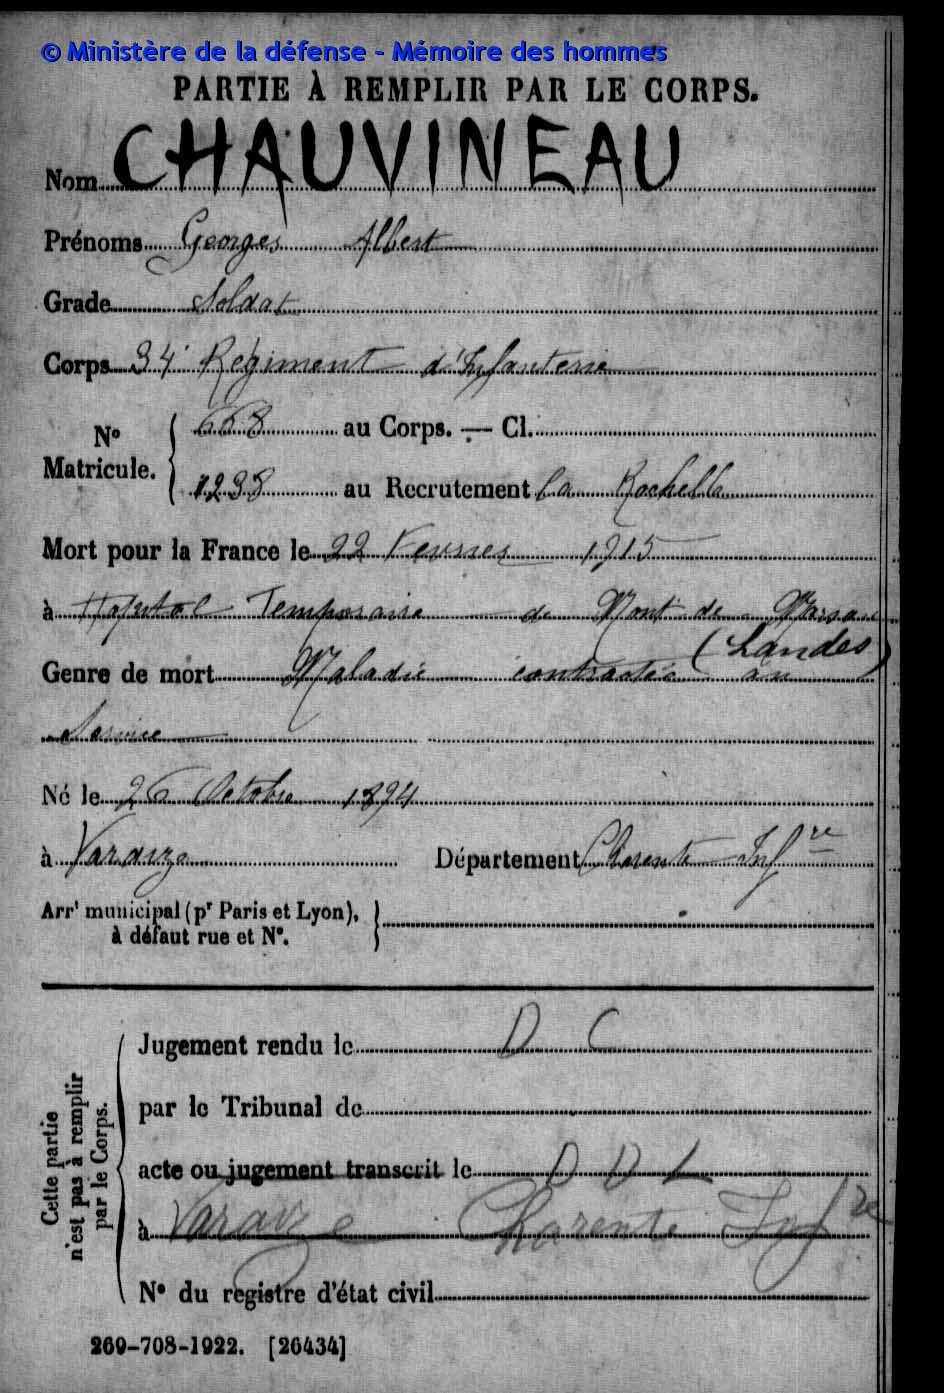 © Ministère de la défense - Mémoire des hommes
PARTIE À REMPLIR PAR LE CORPS.
Nom CHAUVINEAU
Prénoms Georges Albert
Grade Soldat
Corps 34e Régiment d'Infanterie
No Matricule. { 668 au Corps. — Cl.
1238 au Recrutement La Rochelle
Mort pour la France le 22 Fevrier 1915
à Hopital Temporaire de Mont de Marsan
(Landes)
Genre de mort Maladie contractée en
Service
Né le 26 Octobre 1894
à Varaize Département Charente Infre
Arrt municipal (pr Paris et Lyon),
à défaut rue et No.
Cette partie n'est pas à remplir par le Corps.
Jugement rendu le D C
par le Tribunal de
acte ou jugement transcrit le D D L
à Varaize Charente Infre
No du registre d'état civil
269-708-1922. [26434]